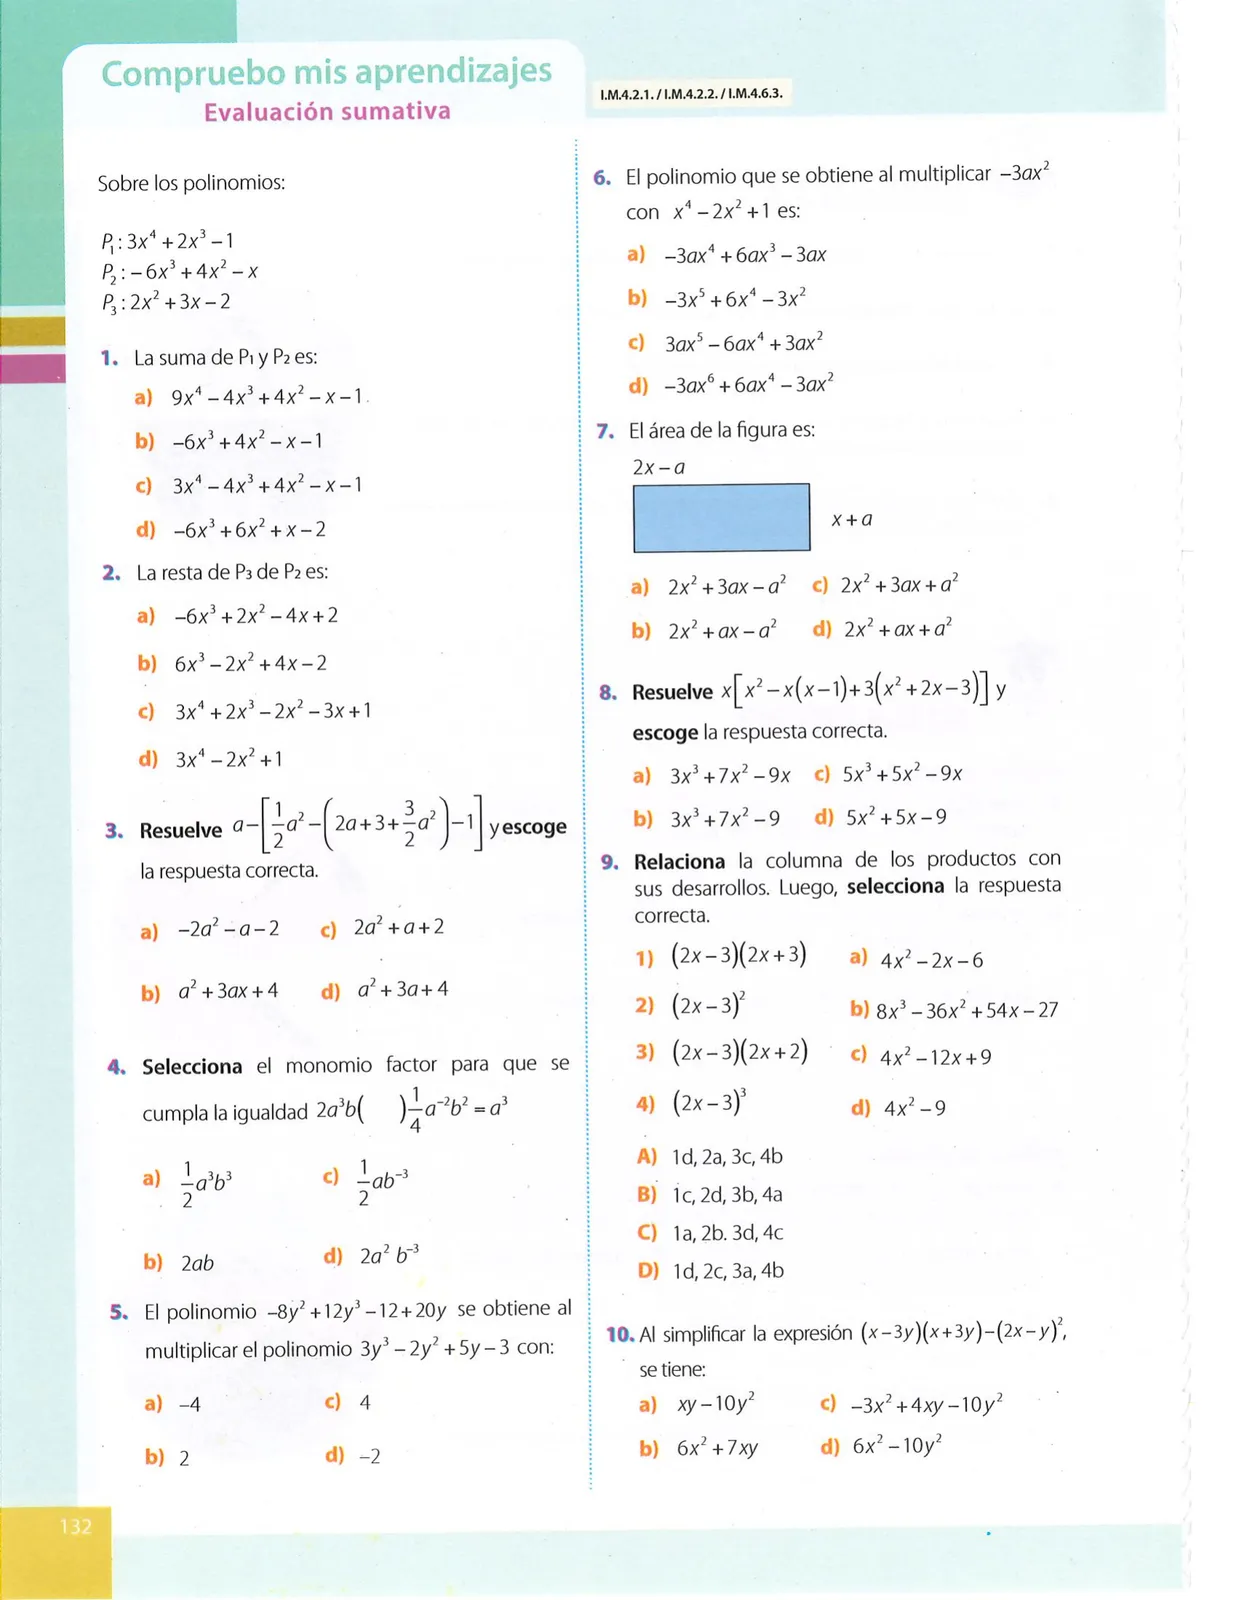 Compruebo mis aprendizajes
Evaluación sumativa
I.M.4.2.1. / I.M.4.2.2. / I.M.4.6.3.
Sobre los polinomios:
P₁: 3x⁴ + 2x³ – 1
P₂: – 6x³ + 4x² – x
P₃: 2x² + 3x – 2
1. La suma de P₁ y P₂ es:
a) 9x⁴ – 4x³ + 4x² – x – 1
b) –6x³ + 4x² – x – 1
c) 3x⁴ – 4x³ + 4x² – x – 1
d) –6x³ + 6x² + x – 2
2. La resta de P₃ de P₂ es:
a) –6x³ + 2x² – 4x + 2
b) 6x³ – 2x² + 4x – 2
c) 3x⁴ + 2x³ – 2x² – 3x + 1
d) 3x⁴ – 2x² + 1
3. Resuelve a–[1/2 a² – (2a + 3 + 3/2 a²) – 1] y escoge
la respuesta correcta.
a) –2a² – a – 2 c) 2a² + a + 2
b) a² + 3ax + 4 d) a² + 3a + 4
4. Selecciona el monomio factor para que se
cumpla la igualdad 2a³b( )1/4 a⁻²b² = a³
a) 1/2 a³b³ c) 1/2 ab⁻³
b) 2ab d) 2a² b⁻³
5. El polinomio –8y² + 12y³ – 12 + 20y se obtiene al
multiplicar el polinomio 3y³ – 2y² + 5y – 3 con:
a) –4 c) 4
b) 2 d) –2
132
6. El polinomio que se obtiene al multiplicar –3ax²
con x⁴ – 2x² + 1 es:
a) –3ax⁴ + 6ax³ – 3ax
b) –3x⁵ + 6x⁴ – 3x²
c) 3ax⁵ – 6ax⁴ + 3ax²
d) –3ax⁶ + 6ax⁴ – 3ax²
7. El área de la figura es:
2x – a
x + a
a) 2x² + 3ax – a² c) 2x² + 3ax + a²
b) 2x² + ax – a² d) 2x² + ax + a²
8. Resuelve x[x² – x(x – 1) + 3(x² + 2x – 3)] y
escoge la respuesta correcta.
a) 3x³ + 7x² – 9x c) 5x³ + 5x² – 9x
b) 3x³ + 7x² – 9 d) 5x² + 5x – 9
9. Relaciona la columna de los productos con
sus desarrollos. Luego, selecciona la respuesta
correcta.
1) (2x – 3)(2x + 3) a) 4x² – 2x – 6
2) (2x – 3)² b) 8x³ – 36x² + 54x – 27
3) (2x – 3)(2x + 2) c) 4x² – 12x + 9
4) (2x – 3)³ d) 4x² – 9
A) 1d, 2a, 3c, 4b
B) 1c, 2d, 3b, 4a
C) 1a, 2b. 3d, 4c
D) 1d, 2c, 3a, 4b
10. Al simplificar la expresión (x – 3y)(x + 3y) – (2x – y)²,
se tiene:
a) xy – 10y² c) –3x² + 4xy – 10y²
b) 6x² + 7xy d) 6x² – 10y²